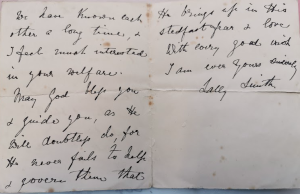 We have known each
other a long time, &
I feel much interested
in your welfare.
May God bless you
& guide you, as He
will doubtless do, for
He never fails to help
& govern them that
He brings up in His
stedfast fear & love
With every good wish
I am ever yours sincerely
Smith